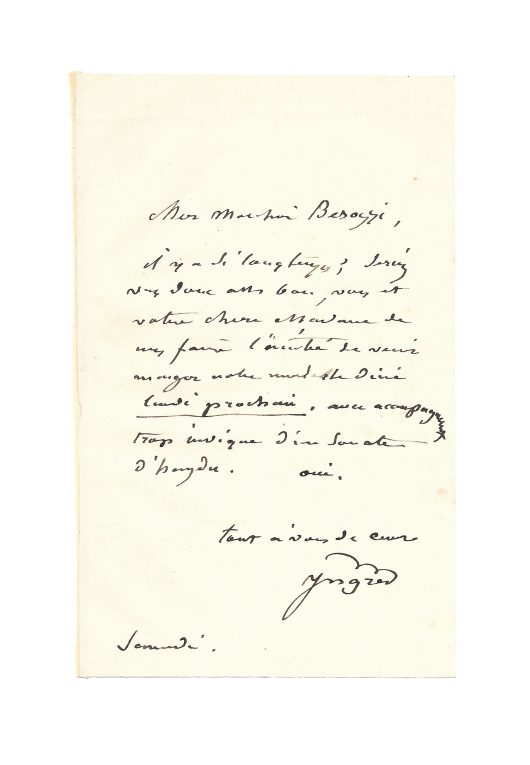 Mon cher Besozzi,
il y a si longtemps; seriez
vous donc assez bon, vous et
votre chère Madame de
nous faire l'amitié de venir
manger notre modeste diné
lundi prochain, avec accompagnement
trop unique d'une Sonate
d'haydn. oui.
tout à vous de cœur
Ingres
Samedi.